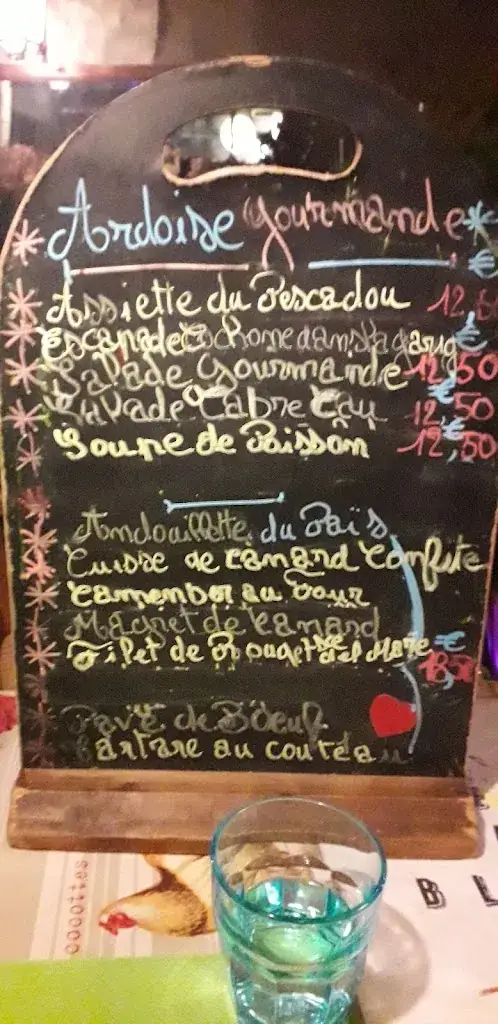 Ardoise gourmande
€
Assiette du Pescadou 12,50
€
Salade Gourmande 12,50
€
Salade Cabre Cau 12,50
€
Soupe de Poisson 12,50
Andouillette du Païs
Cuisse de canard Confite
Camembert au Four
Magret de Canard
Filet de Rouget del Mare
€
18,50
Pavé de Boeuf
Tartare au couteau
cocottes
BL